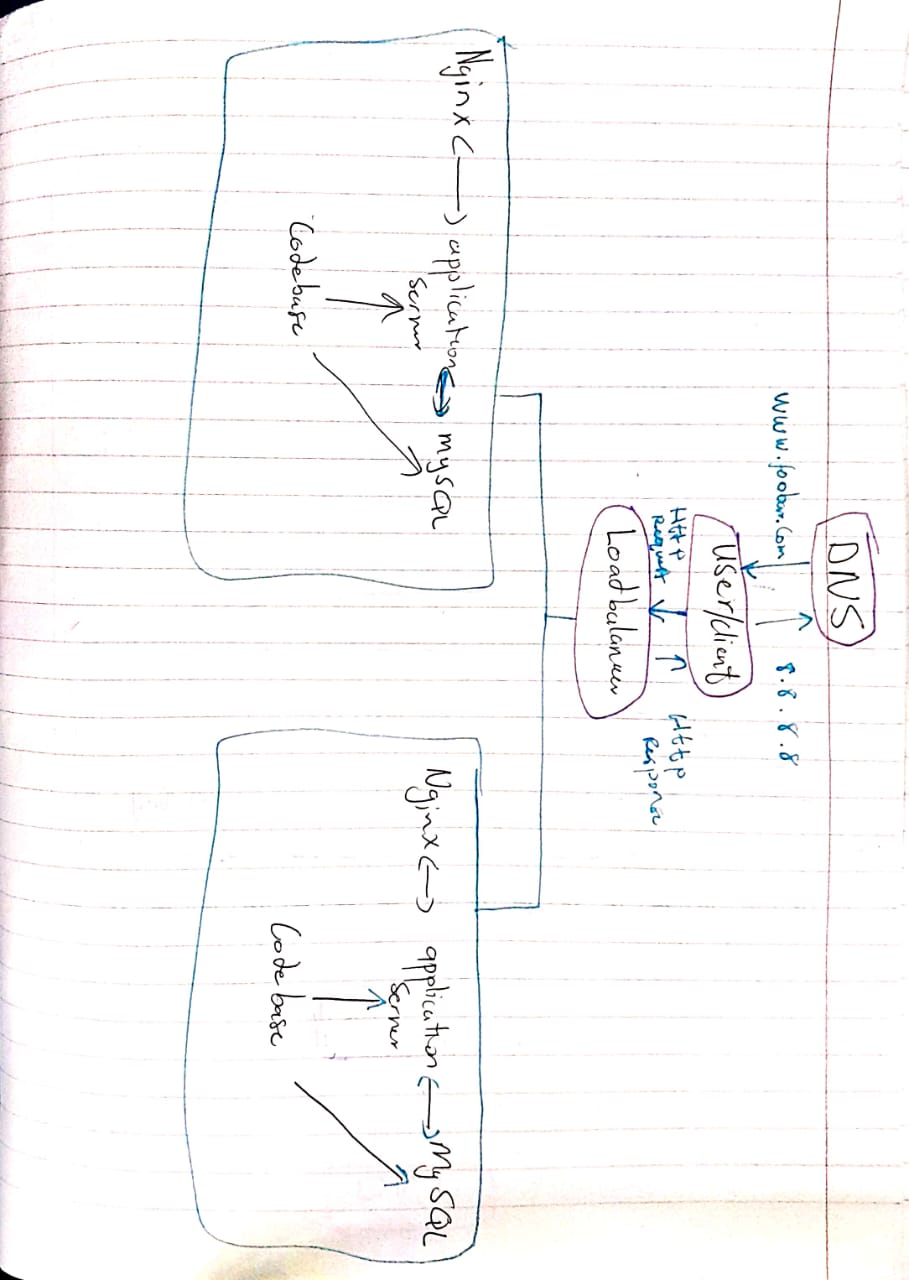 DNS
www.foobar.com
8.8.8.8
User/client
Http
Request
Http
Response
Loadbalancer
Nginx <—> application <-> mySQL
Server
Codebase
Nginx <-> application <—> MySQL
Server
Codebase